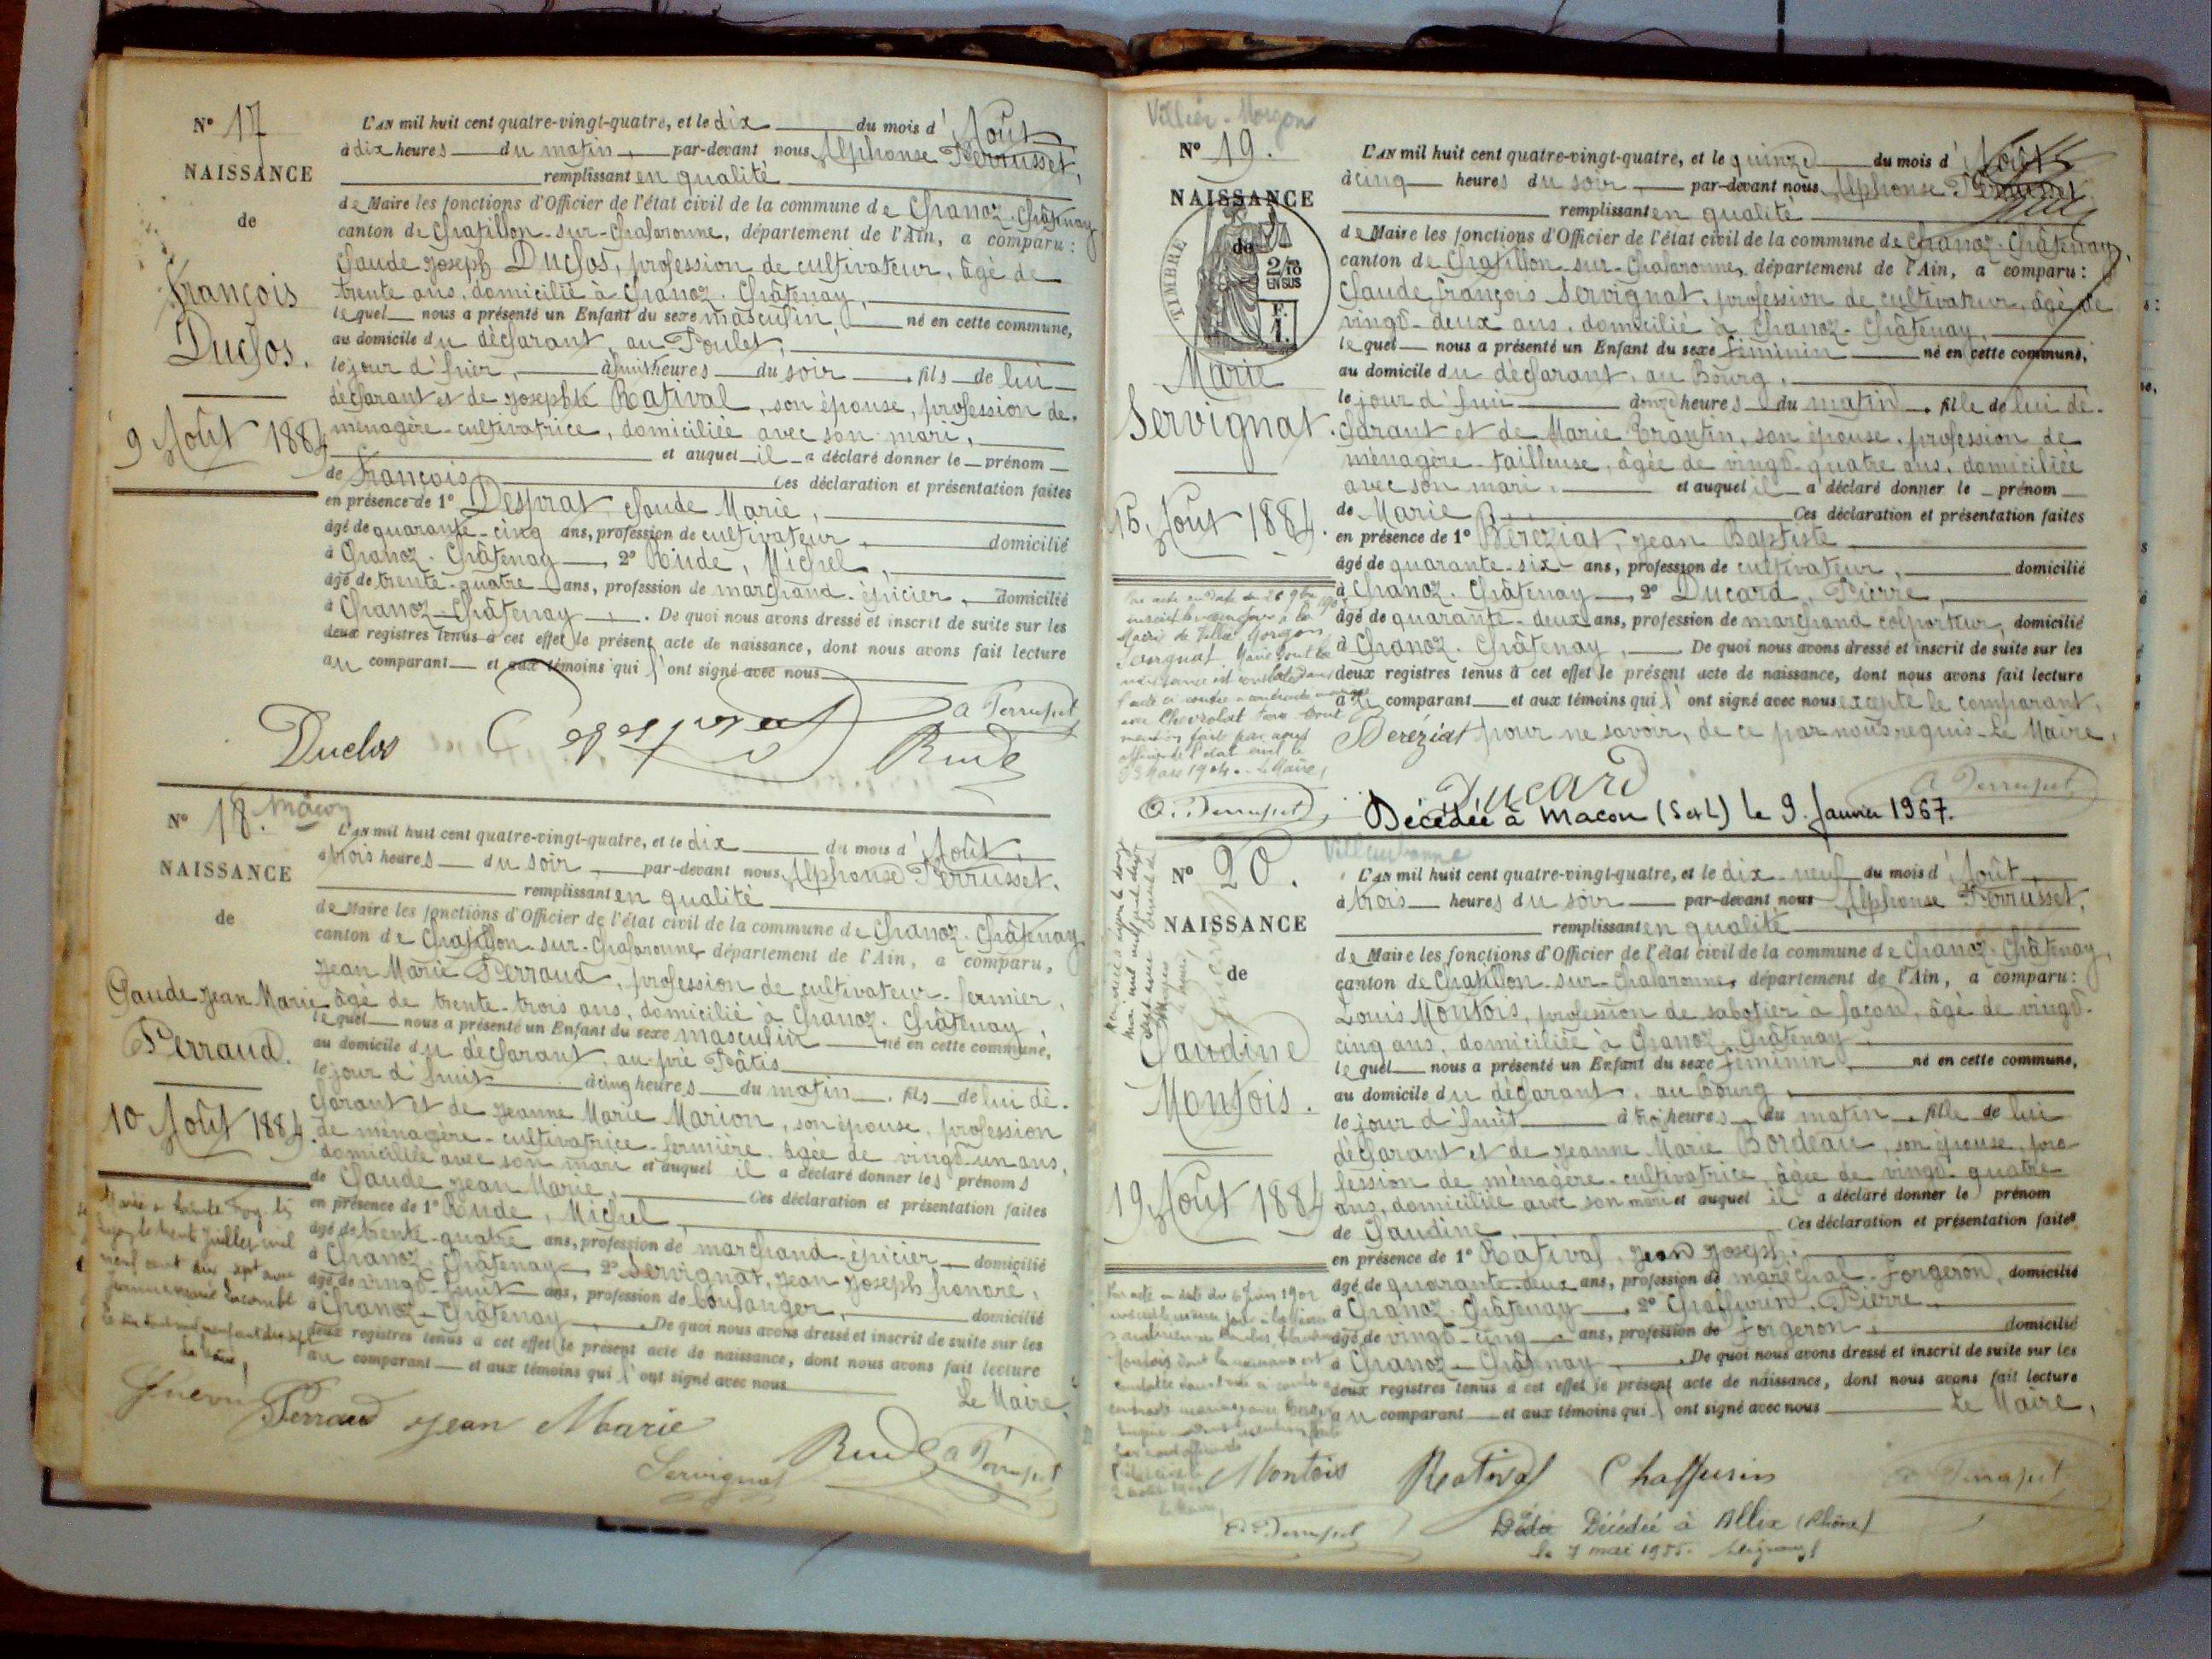 N° 17
NAISSANCE
de
François
Duclos.
9 Août 1884
L'AN mil huit cent quatre-vingt-quatre, et le dix du mois d'Août
à dix heures du matin, par-devant nous Alphonse Perrusset,
remplissant en qualité
de Maire les fonctions d'Officier de l'état civil de la commune de Chanoz-Châtenay
canton de Chatillon-sur-Chalaronne, département de l'Ain, a comparu :
Claude Joseph Duclos, profession de cultivateur, âgé de
trente ans, domicilié à Chanoz-Châtenay,
lequel nous a présenté un Enfant du sexe masculin, né en cette commune,
au domicile du déclarant, au Poulet,
le jour d'hier, à huit heures du soir, fils de lui
déclarant et de Josephte Ratival, son épouse, profession de
ménagère-cultivatrice, domiciliée avec son mari,
et auquel il a déclaré donner le prénom
de François Ces déclaration et présentation faites
en présence de 1° Desprat, Claude Marie,
âgé de quarante-cinq ans, profession de cultivateur, domicilié
à Chanoz-Châtenay, 2° Rude, Michel,
âgé de trente-quatre ans, profession de marchand-épicier, domicilié
à Chanoz-Châtenay. De quoi nous avons dressé et inscrit de suite sur les
deux registres tenus à cet effet le présent acte de naissance, dont nous avons fait lecture
au comparant et aux témoins qui l'ont signé avec nous
A Perrusset
Duclos Rude
N° 18. Mâcon
NAISSANCE
de
Claude Jean Marie
Perraud.
10 Août 1884.
L'AN mil huit cent quatre-vingt-quatre, et le dix du mois d'Août,
à trois heures du soir, par-devant nous Alphonse Perrusset,
remplissant en qualité
de Maire les fonctions d'Officier de l'état civil de la commune de Chanoz-Châtenay
canton de Chatillon-sur-Chalaronne, département de l'Ain, a comparu,
Jean Marie Perraud, profession de cultivateur-fermier,
âgé de trente-trois ans, domicilié à Chanoz-Châtenay,
lequel nous a présenté un Enfant du sexe masculin né en cette commune,
au domicile du déclarant, au pré Pâtis
le jour d'huis à cinq heures du matin, fils de lui dé-
clarant et de Jeanne Marie Marion, son épouse, profession
de ménagère-cultivatrice-fermière, âgée de vingt-un ans,
domiciliée avec son mari et auquel il a déclaré donner les prénoms
de Claude Jean Marie, Ces déclaration et présentation faites
en présence de 1° Rude, Michel,
âgé de trente-quatre ans, profession de marchand-épicier domicilié
à Chanoz-Châtenay, 2° Servignat, Jean Joseph honoré,
âgé de vingt-huit ans, profession de boulanger, domicilié
à Chanoz-Châtenay. De quoi nous avons dressé et inscrit de suite sur les
deux registres tenus à cet effet le présent acte de naissance, dont nous avons fait lecture
au comparant et aux témoins qui l'ont signé avec nous
Le Maire,
Marié à Sainte Foy-lès
Lyon le trente Juillet mil
neuf cent dix sept avec
Le Maire,
Perraud Jean Marie
Servignat Rude A Perrusset
Villié-Morgon
N° 19.
NAISSANCE
de
TIMBRE
2/10
EN SUS
F.
1.
Marie
Servignat.
15 Août 1884.
L'AN mil huit cent quatre-vingt-quatre, et le quinze du mois d'Août
à cinq heures du soir, par-devant nous Alphonse Perrusset
remplissant en qualité
de Maire les fonctions d'Officier de l'état civil de la commune de Chanoz-Châtenay,
canton de Chatillon-sur-Chalaronne, département de l'Ain, a comparu :
Claude François Servignat, profession de cultivateur, âgé de
vingt-deux ans, domicilié à Chanoz-Châtenay,
lequel nous a présenté un Enfant du sexe féminin né en cette commune,
au domicile du déclarant, au Bourg,
le jour d'hui à onze heures du matin, fille de lui dé-
clarant et de Marie Trantin, son épouse, profession de
ménagère-tailleuse, âgée de vingt-quatre ans, domiciliée
avec son mari, et auquel il a déclaré donner le prénom
de Marie Ces déclaration et présentation faites
en présence de 1° Béréziat, Jean Baptiste
âgé de quarante-six ans, profession de cultivateur, domicilié
à Chanoz-Châtenay, 2° Ducard, Pierre,
âgé de quarante-deux ans, profession de marchand colporteur, domicilié
à Chanoz-Châtenay, De quoi nous avons dressé et inscrit de suite sur les
deux registres tenus à cet effet le présent acte de naissance, dont nous avons fait lecture
au comparant et aux témoins qui l'ont signé avec nous excepté le comparant,
pour ne savoir, de ce par nous requis. Le Maire,
Béréziat
Ducard A Perrusset
Décédée à Macon (S et L) le 9 Janvier 1967.
Servignat Marie dont la
naissance est constatée dans
l'acte ci contre a contracté mariage
mention faite par nous
officier de l'état civil le
Mars 1904. Le Maire,
A. Perrusset
Villeurbanne
N° 20.
NAISSANCE
de
Claudine
Montois.
19 Août 1884
L'AN mil huit cent quatre-vingt-quatre, et le dix-neuf du mois d'Août,
à trois heures du soir par-devant nous Alphonse Perrusset,
remplissant en qualité
de Maire les fonctions d'Officier de l'état civil de la commune de Chanoz-Châtenay,
canton de Chatillon-sur-Chalaronne, département de l'Ain, a comparu :
Louis Montois, profession de sabotier à façon, âgé de vingt-
cinq ans, domiciliée à Chanoz-Châtenay,
lequel nous a présenté un Enfant du sexe féminin, né en cette commune,
au domicile du déclarant, au bourg,
le jour d'huit à trois heures du matin, fille de lui
déclarant et de Jeanne Marie Bordeau, son épouse, pro-
fession de ménagère-cultivatrice, âgée de vingt-quatre
ans, domiciliée avec son mari et auquel il a déclaré donner le prénom
de Claudine, Ces déclaration et présentation faites
en présence de 1° Rativat, Jean Joseph,
âgé de quarante-deux ans, profession de maréchal-forgeron, domicilié
à Chanoz-Châtenay, 2° Chaffurin, Pierre
âgé de vingt-cinq ans, profession de forgeron, domicilié
à Chanoz-Châtenay. De quoi nous avons dressé et inscrit de suite sur les
deux registres tenus à cet effet le présent acte de naissance, dont nous avons fait lecture
au comparant et aux témoins qui l'ont signé avec nous Le Maire,
Montois Rativat Chaffurin A Perrusset
Décédée à Alix (Rhône)
le 7 mai 1955.